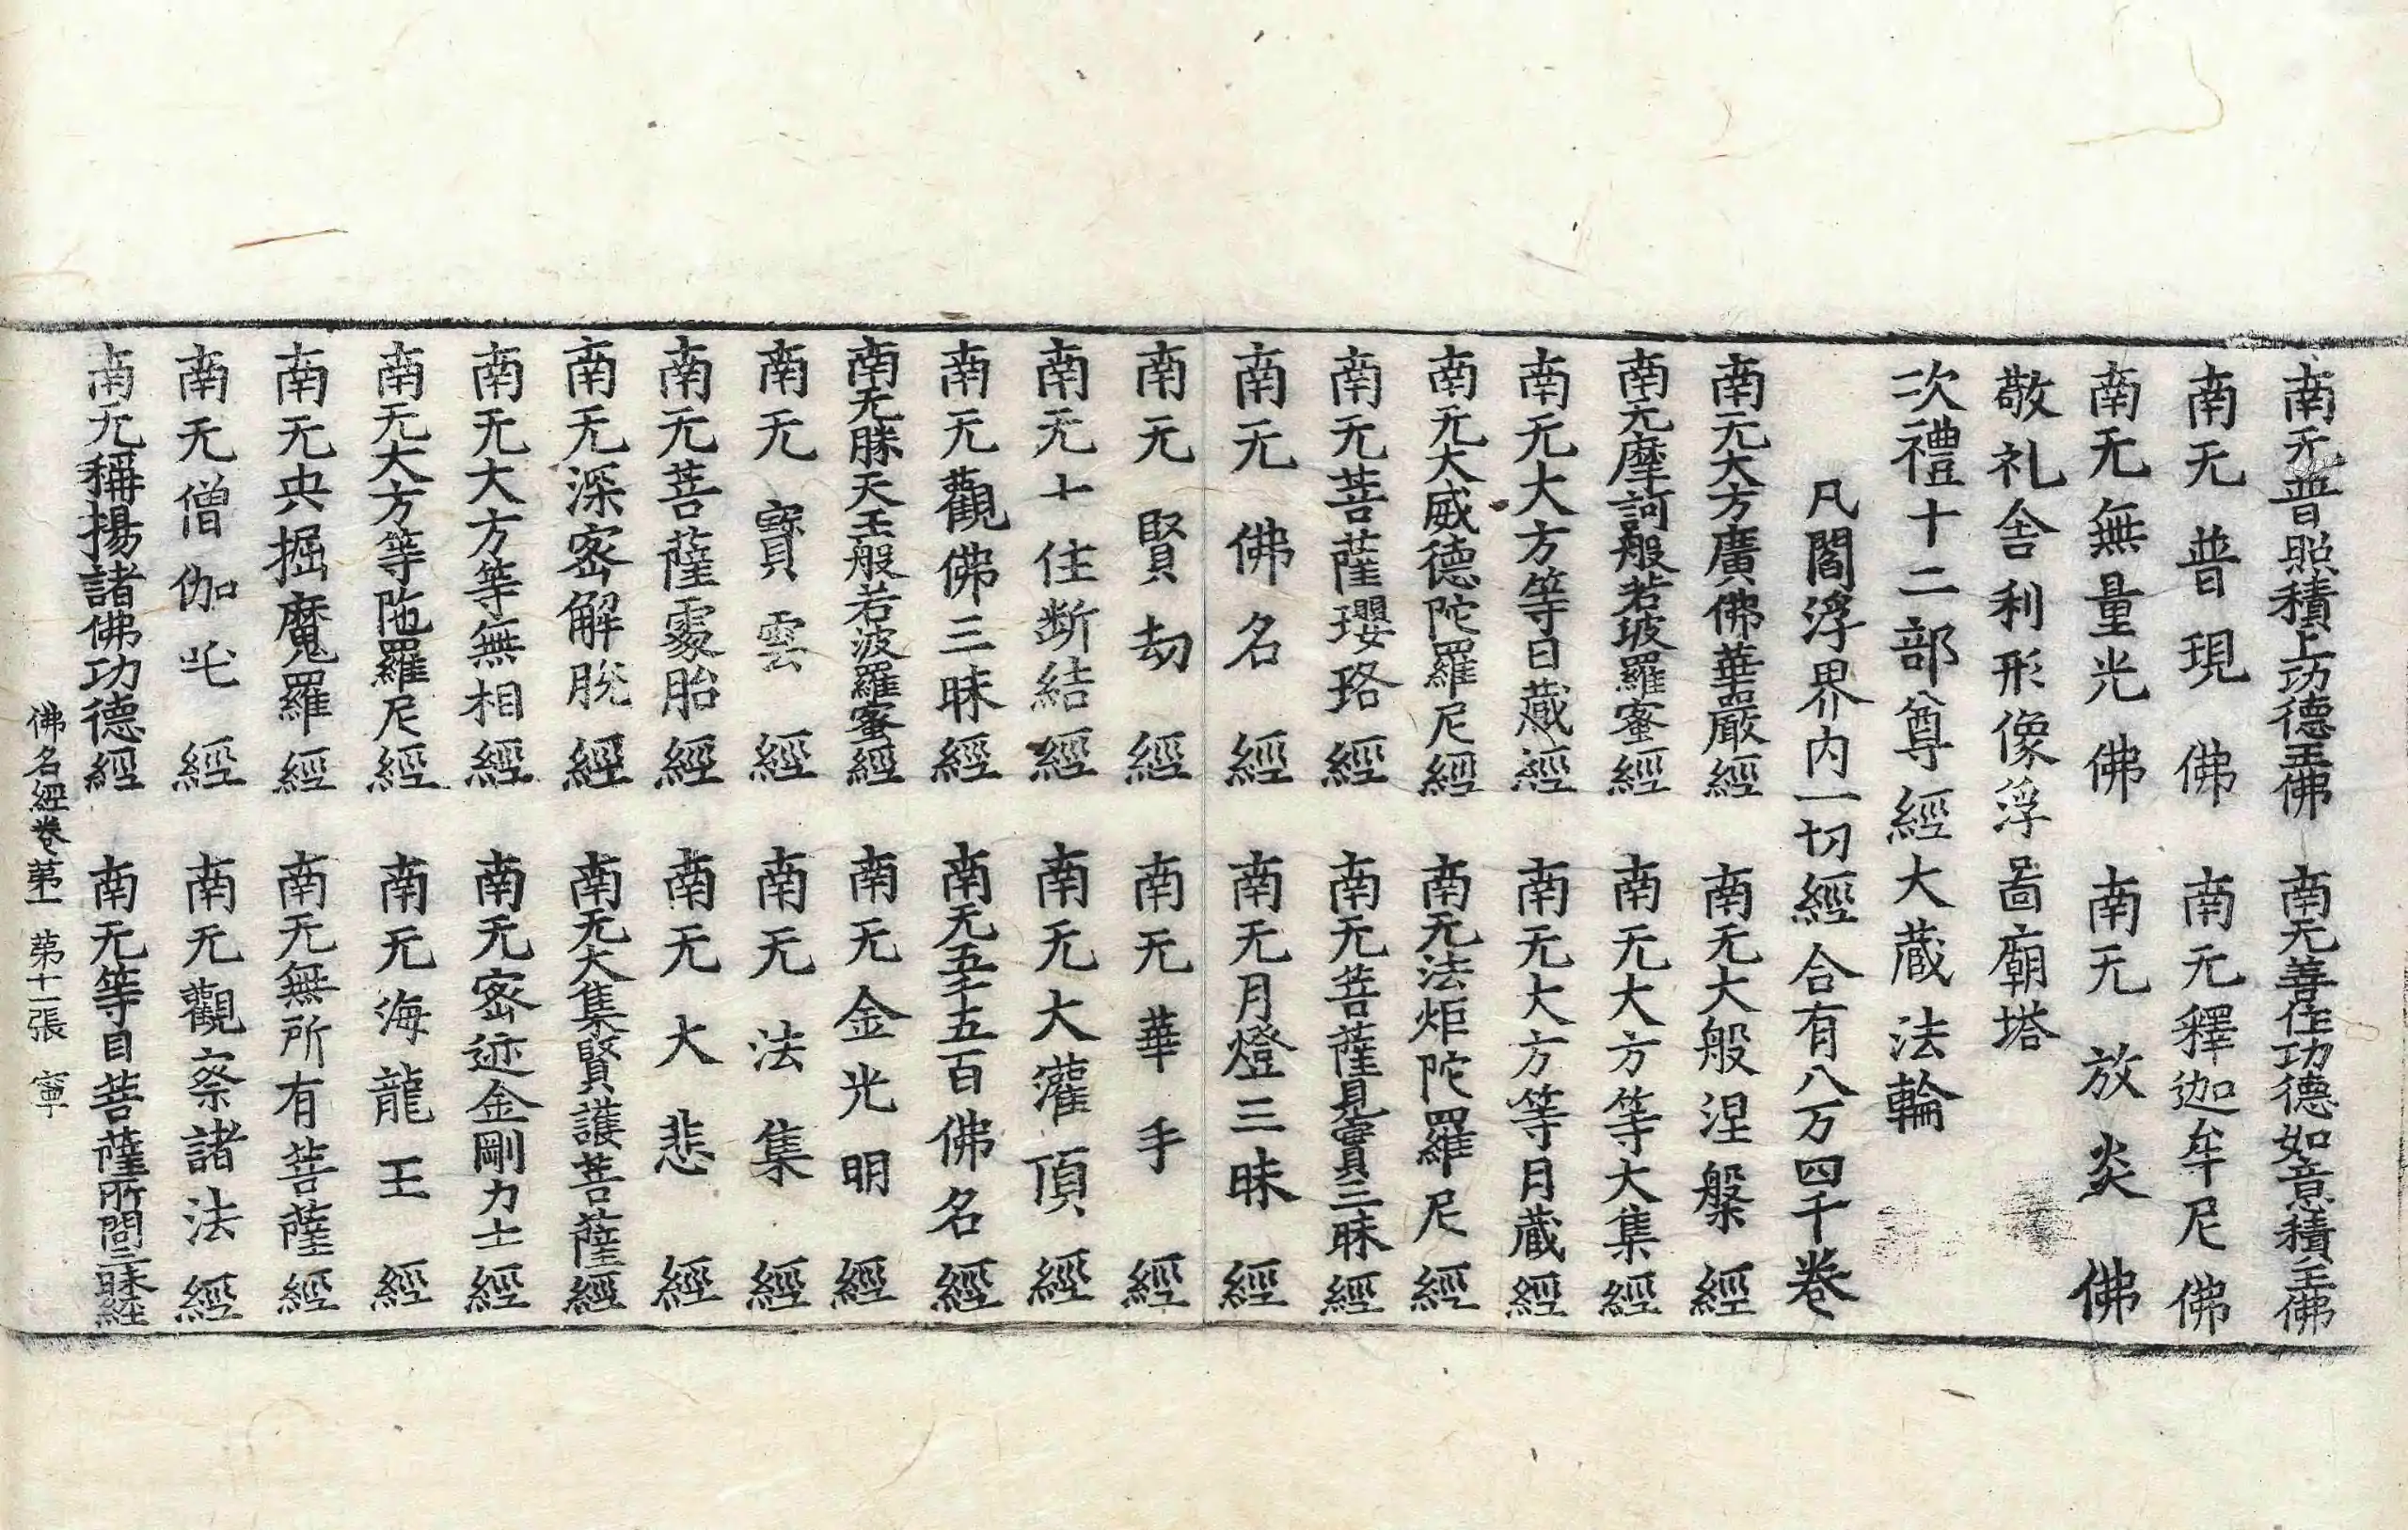 南无普照積上功德王佛 南无善住功德如意積王佛
南无普現佛 南无釋迦牟尼佛
南无無量光佛 南无放炎佛
敬礼舍利形像浮啚廟塔
次禮十二部尊經大蔵法輪
凡閻浮界内一切經合有八万四千卷
南无大方廣佛華嚴經 南无大般涅槃經
南无摩訶般若波羅蜜經 南无大方等大集經
南无大方等日蔵經 南无大方等月蔵經
南无大威德陀羅尼經 南无法炬陀羅尼經
南无菩薩瓔珞經 南无菩薩見實三昧經
南无佛名經 南无月燈三昧經
南无賢劫經 南无華手經
南无十住断結經 南无大灌頂經
南无觀佛三昧經 南无五千五百佛名經
南无勝天王般若波羅蜜經 南无金光明經
南无寶雲經 南无法集經
南无菩薩處胎經 南无大悲經
南无深密解脫經 南无大集賢護菩薩經
南无大方等無相經 南无密迹金剛力士經
南无大方等陁羅尼經 南无海龍王經
南无央掘魔羅經 南无無所有菩薩經
南无僧伽吒經 南无觀察諸法經
南无稱揚諸佛功德經 南无等目菩薩所問三昧經
佛名經卷第一 第十一張 寧